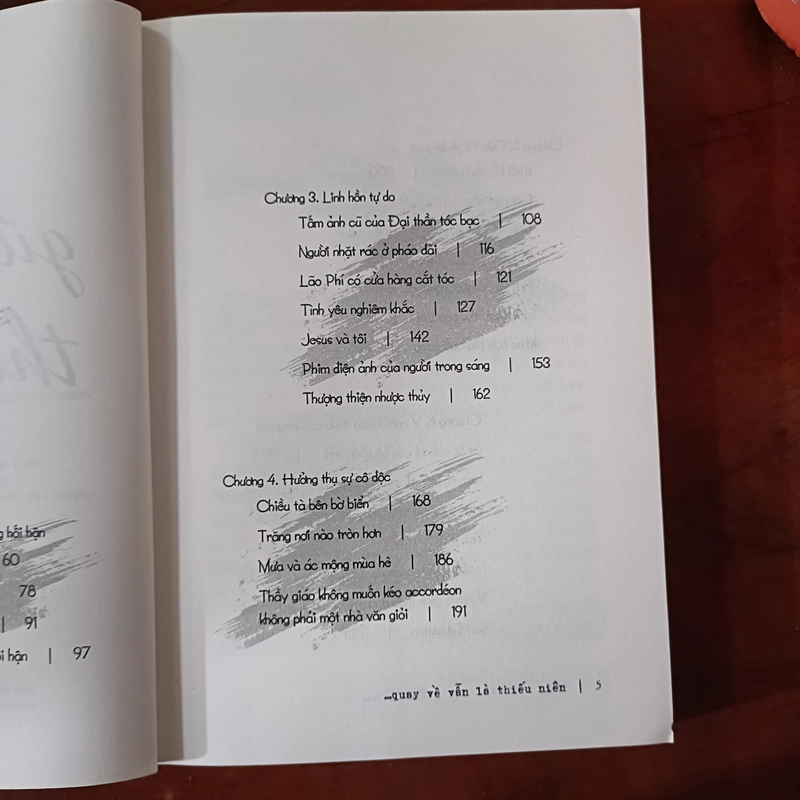 giữ
hối hận
60
78
| 91
hận | 97
Chương 3. Linh hồn tự do
Tấm ảnh cũ của Đại thần tóc bạc | 108
Người nhặt rác ở pháo đài | 116
Lão Phí có cửa hàng cắt tóc | 121
Tình yêu nghiêm khắc | 127
Jesus và tôi | 142
Phim điện ảnh của người trong sáng | 153
Thượng thiện nhược thủy | 162
Chương 4. Hưởng thụ sự cô độc
Chiều tà bên bờ biển | 168
Trăng nơi nào tròn hơn | 179
Mưa và ác mộng mùa hè | 186
Thầy giáo không muốn kéo accordéon
không phải một nhà văn giỏi | 191
...quay về vẫn là thiếu niên | 5